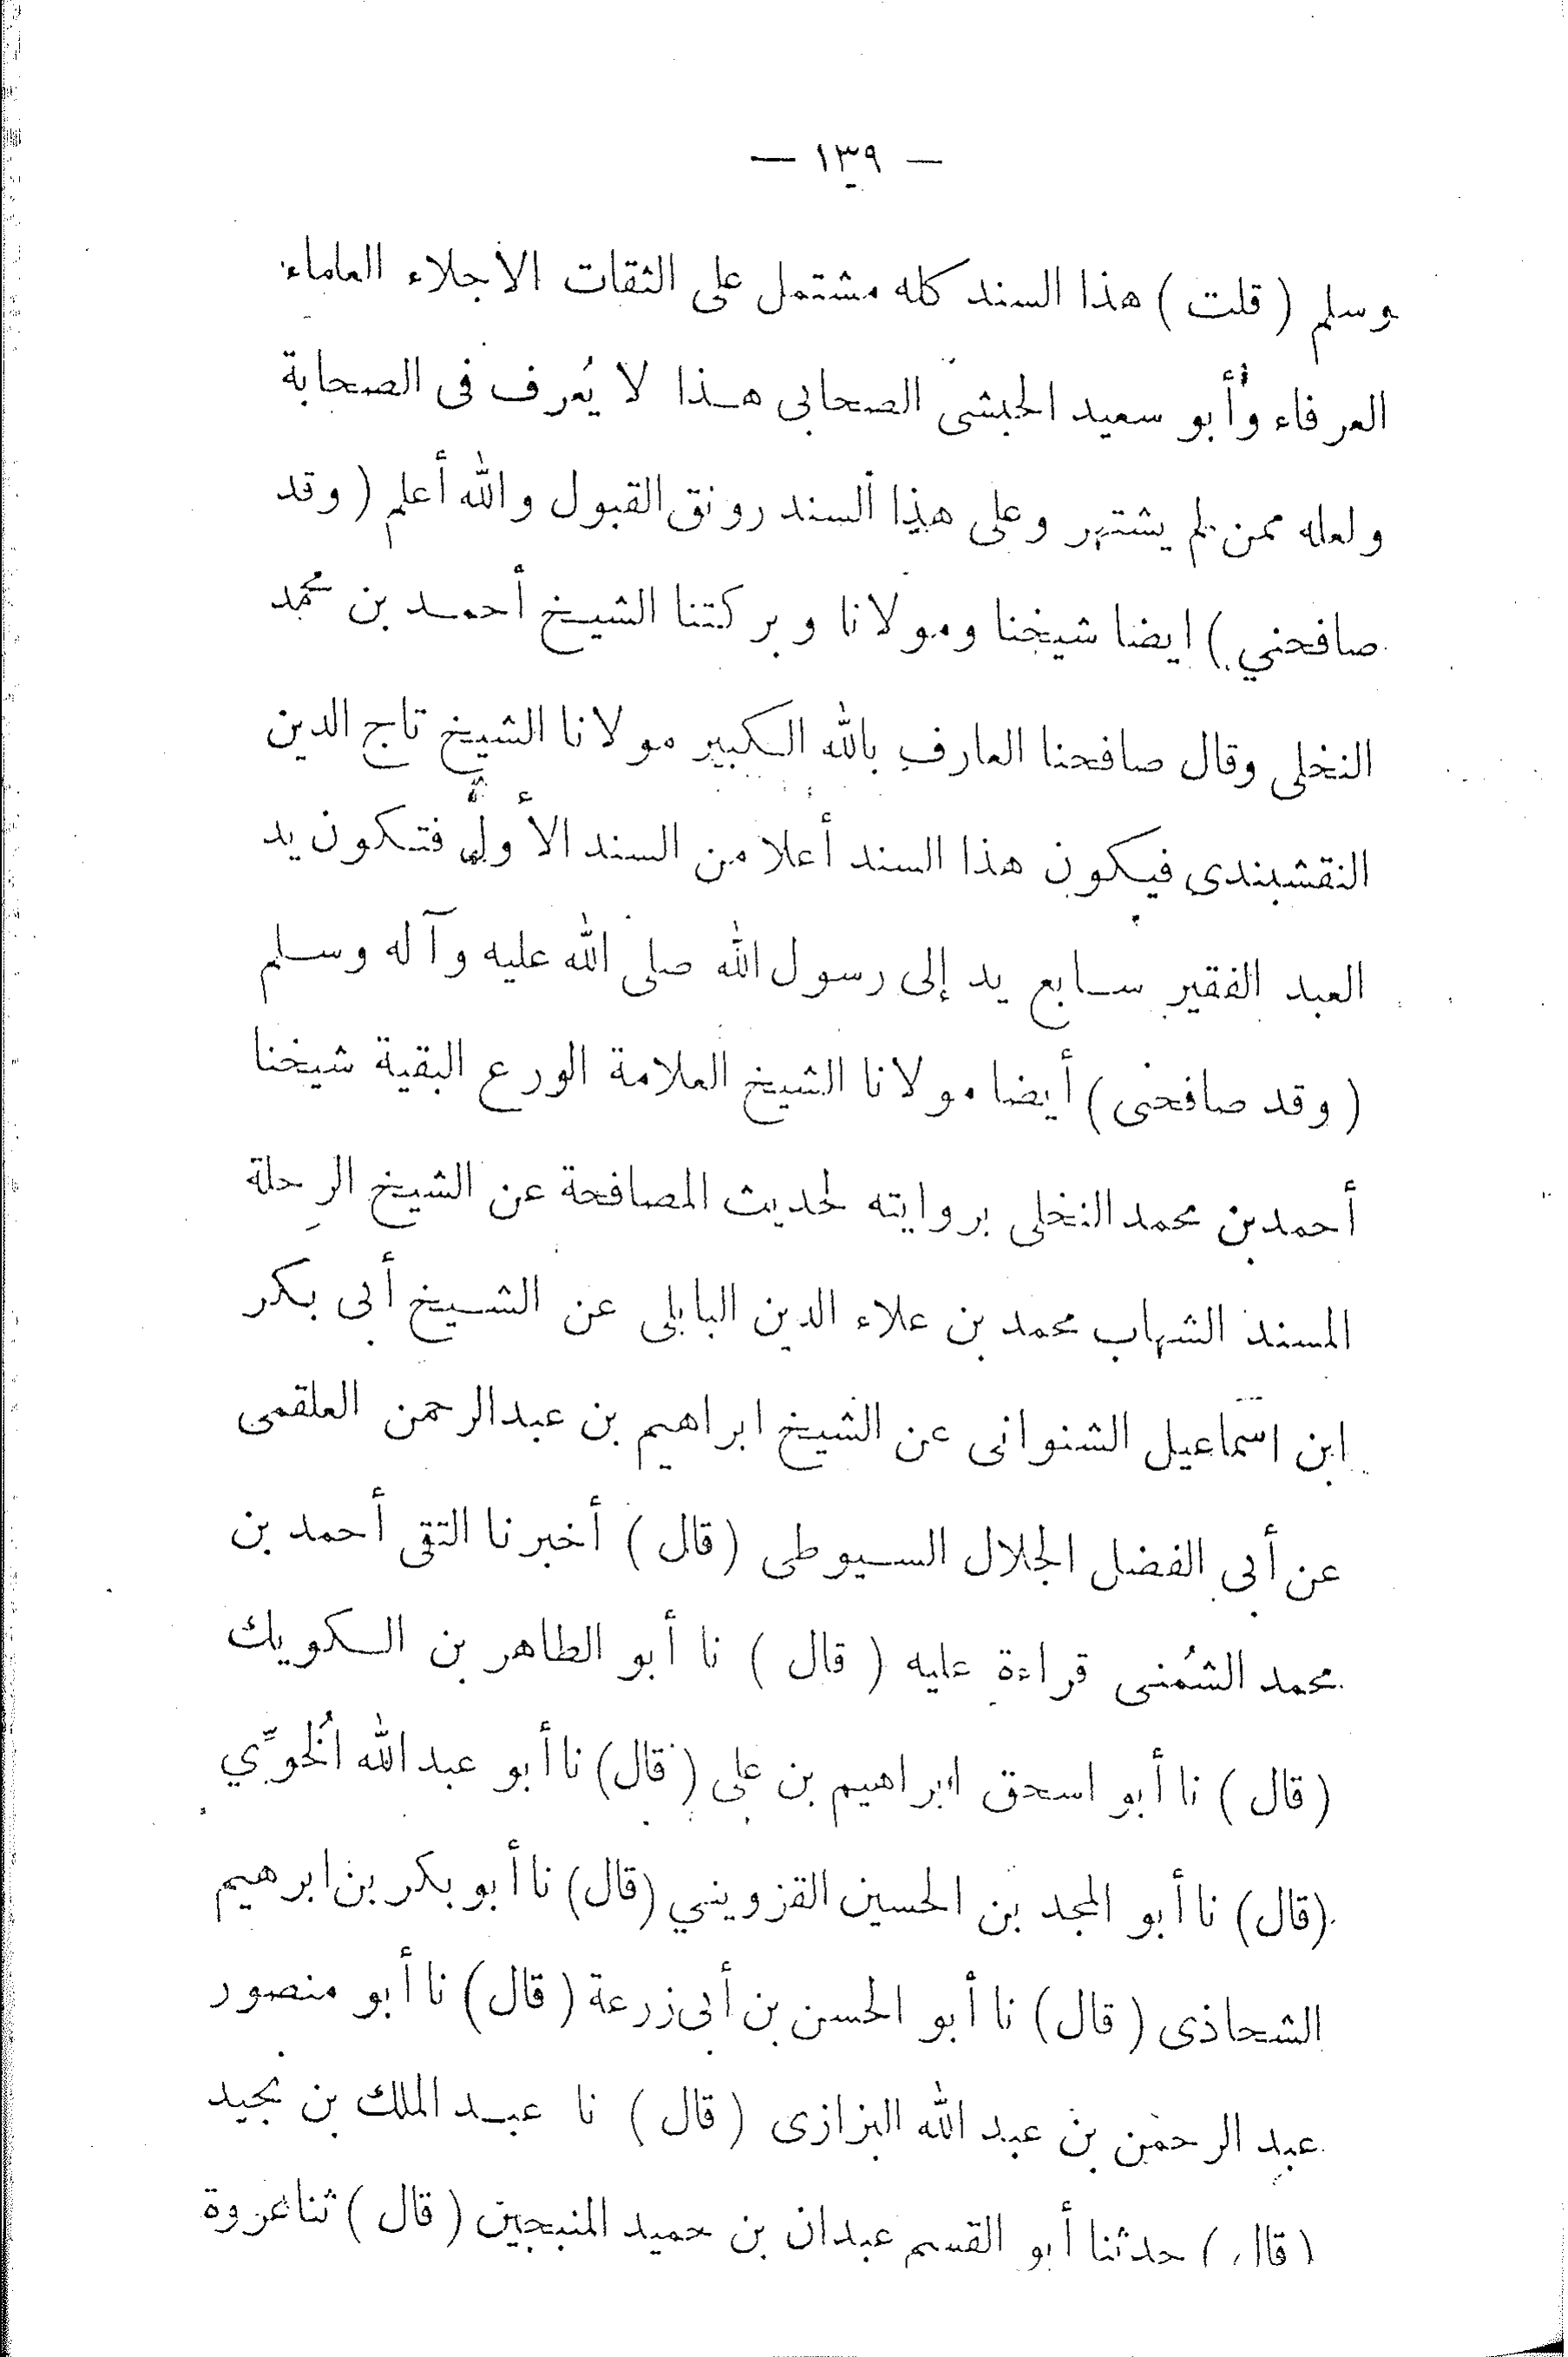 — ١٣٩ —
وسلم ( قلت ) هذا السند كله مشتمل على الثقات الأجلاء العلماء
العرفاء وأبو سعيد الحبشى الصحابى هذا لا يُعرف فى الصحابة
ولعله ممن لم يشتهر وعلى هذا السند رونق القبول والله أعلم ( وقد
صافحني ) ايضا شيخنا ومولانا وبركتنا الشيخ أحمد بن محمد
النخلى وقال صافحنا العارف بالله الكبير مولانا الشيخ تاج الدين
النقشبندى فيكون هذا السند أعلا من السند الأول فتكون يد
العبد الفقير سابع يد إلى رسول الله صلى الله عليه وآله وسلم
( وقد صافحنى ) أيضا مولانا الشيخ العلامة الورع البقية شيخنا
أحمد بن محمد النخلى بروايته لحديث المصافحة عن الشيخ الرِحلة
المسند الشهاب محمد بن علاء الدين البابلى عن الشيخ أبى بكر
ابن اسماعيل الشنوانى عن الشيخ ابراهيم بن عبدالرحمن العلقمى
عن أبى الفضل الجلال السيوطى ( قال ) أخبرنا التقى أحمد بن
محمد الشمُنى قراءة عليه ( قال ) نا أبو الطاهر بن الكويك
( قال ) نا أبو اسحق ابراهيم بن على ( قال ) نا أبو عبد الله الخُوِّي
( قال ) نا أبو المجد بن الحسين القزويني ( قال ) نا أبو بكر بن ابرهيم
الشحاذى ( قال ) نا أبو الحسن بن أبى زرعة ( قال ) نا أبو منصور
عبد الرحمن بن عبد الله البزازى ( قال ) نا عبد الملك بن نجيد
( قال ) حدثنا أبو القسم عبدان بن حميد المنبجين ( قال ) ثنا عروة